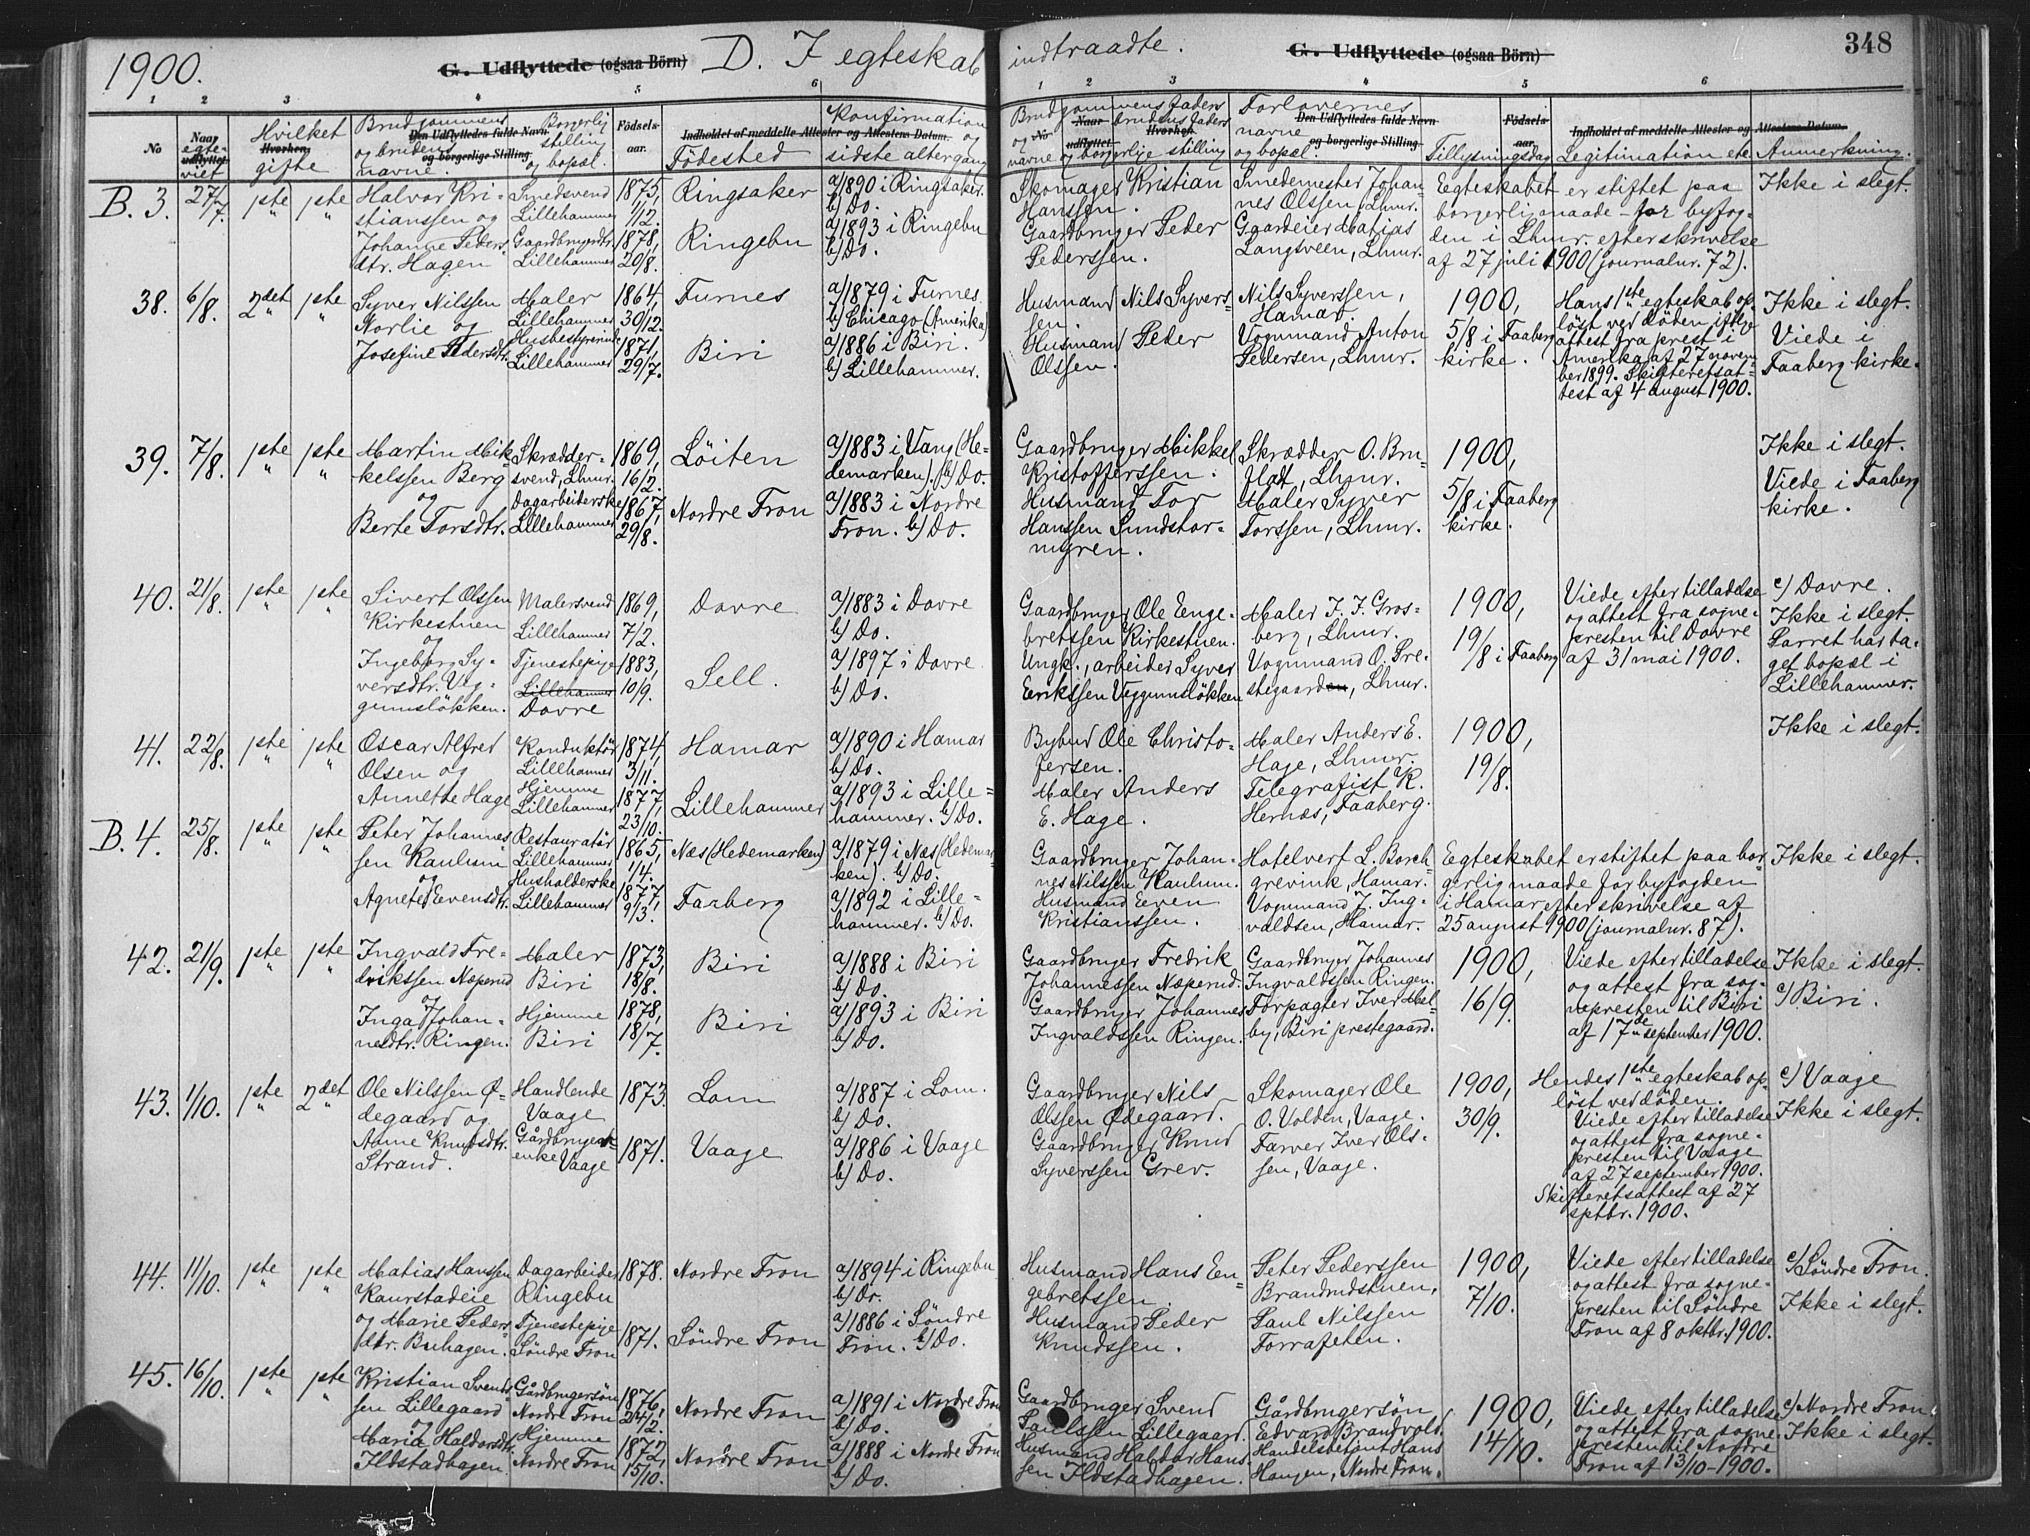 1900.
G. Udflyttede (ogsaa Börn)
D. I egteskab indtraadte.
G. Udflyttede (ogsaa Börn)
348
1 2 3 4 5 6
1 2 3 4 5 6
No
Naar udflyttet
egteviet
Hvorhen
Hvilket
gifte
Brudgommens
Den Udflyttedes fulde Navn og borgerlige Stilling.
og brudens
navne.
Borgerlig
stilling
og bopæl.
Födsels-
aar.
Indholdet af meddelte Attester og Attestens Datum.
Födested
Konfirmation
og
sidste altergang
Brudgommens faders
og brudens faders
navne og borgerlige stilling
No
Naar udflyttet
Hvorhen
Forlovernes
navne
og bopæl.
Den Udflyttedes fulde Navn og borgerlige Stilling.
Födsels-
aar
Tillysningsdag
Indholdet af meddelte Attester og Attestens Datum.
Legitimation etc.
Anmerkning.
B. 3.
27/7.
1ste
"
1ste
"
Halvor Kri-
stianssen og
Johanne Peders-
dtr. Hagen
Smedsvend
Lillehammer
Gaardbrugerdtr.
Lillehammer
1875,
1/12.
1878,
20/8.
Ringsaker
Ringebu
a/1890 i Ringsaker.
b/ Do.
a/1893 i Ringebu
b/ Do.
Skomager Kristian
Hanssen.
Gaardbruger Peder
Pederssen.
Smedemester Johan-
nes Olssen, Lhmr.
Gaardeier Matias
Langsveen, Lhmr.
Egteskabet er stiftet paa
borgerlig maade for byfog-
den i Lhmr. efter skrivelse
af 27 juli 1900 (journalnr. 72).
Ikke i slegt.
38.
6/8.
2det
"
1ste
"
Syver Nilssen
Norlie og
Josefine Pedersdtr.
Maler
Lillehammer
Husbestyrerinde
Lillehammer
1864,
30/12.
1871,
29/7.
Furnes
Biri
a/1879 i Furnes.
b/ Chicago (Amerika)
a/1886 i Biri.
b/ Lillehammer.
Husmand Nils Syvers-
sen.
Husmand Peder
Olssen.
Nils Syverssen,
Hamar.
Vognmand Anton
Pedersen, Lhmr.
1900,
5/8 i Faaberg
kirke.
Hans 1ste egteskab op-
löst ved döden ifölge
attest fra prest i
Amerika af 27 novem-
ber 1899. Skifteretsat-
test af 4 august 1900.
Ikke i slegt.
Viede i
Faaberg kirke.
39.
7/8.
1ste
"
1ste
"
Martin Mik-
kelssen Berg
og
Berte Torsdtr.
Skrædder-
svend, Lhmr.
Dagarbeiderske
Lillehammer
1869,
16/2.
1867,
29/8.
Löiten
Nordre Fron
a/1883 i Vang (He-
demarken). b/ Do.
a/1883 i Nordre
Fron. b/ Do.
Gaardbruger Mikkel
Kristofferssen.
Husmand Tor
Hanssen Sundstor-
myren.
Skrædder O. Bru-
flat, Lhmr.
Maler Syver
Torssen, Lhmr.
1900,
5/8 i Faaberg
kirke.
Ikke i slegt.
Viede i Faaberg
kirke.
40.
21/8.
1ste
"
1ste
"
Sivert Olssen
Kirkestuen
og
Ingeborg Sy-
versdtr. Veg-
gumsløkken.
Malersvend
Lillehammer
Tjenestepige
Lillehammer
Dovre
1869,
7/2.
1883,
10/9.
Dovre
Sell.
a/1883 i Dovre
b/ Do.
a/1897 i Dovre.
b/ Do.
Gaardbruger Ole Enge-
bretssen Kirkestuen.
Ungk., arbeider Syver
Erikssen Veggumsløkken
Maler J. J. Gros-
berg, Lhmr.
Vognmand O. Pre-
stegaarden, Lhmr.
1900,
19/8 i Faaberg
Viede efter tilladelse
og attest fra sogne-
presten til Dovre
af 31 mai 1900.
c/ Dovre.
Ikke i slegt.
Parret har ta-
get bopæl i
Lillehammer.
41.
22/8.
1ste
"
1ste
"
Oscar Alfred
Olsen og
Annette Hage
Konduktör
Lillehammer
Hjemme
Lillehammer
1874,
3/11.
1877,
23/10.
Hamar
Lillehammer
a/1890 i Hamar
b/ Do.
a/1893 i Lille-
hammer. b/ Do.
Bybud Ole Christo-
fersen.
Maler Anders
E. Hage.
Maler Anders E.
Hage, Lhmr.
Telegrafist K.
Hernæs, Faaberg.
1900,
19/8.
Ikke i slegt.
B. 4.
25/8.
1ste
"
1ste
"
Peter Johannes-
sen Kaulum
og
Agnete Evensdtr.
Restauratör
Lillehammer
Husholderske
Lillehammer
1865,
1/4.
1877,
9/3.
Næs (Hedemarken)
Faaberg
a/1879 i Næs (Hedemar-
ken). b/ Do.
a/1892 i Lille-
hammer. b/ Do.
Gaardbruger Johan-
nes Nilssen Kaulum.
Husmand Even
Kristianssen.
Hotelvert L. Borch-
grevink, Hamar.
Vognmand J. Ing-
valdsen, Hamar.
Egteskabet er stiftet paa bor-
gerlig maade for byfogden
i Hamar efter skrivelse af
25 august 1900 (journalnr. 87).
Ikke i slegt.
42.
21/9.
1ste
"
1ste
"
Ingvald Fre-
drikssen Næperud
og
Inga Johan-
nedtr. Ringen.
Maler
Biri
Hjemme
Biri
1873,
18/8.
1878,
18/7.
Biri
Biri
a/1888 i Biri
b/ Do.
a/1893 i Biri
b/ Do.
Gaardbruger Fredrik
Johannessen Næperud.
Gaardbruger Johannes
Ingvaldssen Ringen.
Gaardbruger Johannes
Ingvaldssen Ringen.
Forpagter Iver Mæl-
by, Biri prestegaard.
1900,
16/9.
Viede efter tilladelse
og attest fra sog-
nepresten til Biri
af 17de september 1900.
Ikke i slegt.
c/ Biri.
43.
1/10.
1ste
"
2det
"
Ole Nilssen Ø-
degaard og
Anne Knudsdtr.
Strand.
Handlende
Vaage
Gårdbruger-
enke Vaage
1873.
1871.
Lom
Vaage
a/1887 i Lom.
b/ Do.
a/1886 i Vaage
b/ Do.
Gaardbruger Nils
Olssen Ødegaard.
Gaardbruger Knud
Syverssen Grev.
Skomager Ole
O. Volden, Vaage.
Farver Iver Ols-
sen, Vaage.
1900,
30/9.
Hendes 1ste egteskab op-
löst ved döden.
Viede efter tilladelse
og attest fra sogne-
presten til Vaage
af 27 september 1900.
Skifteretsattest af 27
sptbr. 1900.
c/ Vaage
Ikke i slegt.
44.
11/10.
1ste
"
1ste
"
Matias Hanssen
Kaurstadeie
og Marie Peders-
dtr. Buhagen.
Dagarbeider
Ringebu
Tjenestepige
Söndre Fron
1878.
1871.
Nordre Fron
Söndre Fron
a/1894 i Ringebu
b/ Do.
a/1886 i Söndre
Fron. b/ Do.
Husmand Hans En-
gebretssen
Husmand Peder
Knudssen.
Peter Pederssen
Brandrudstuen,
Paul Nilssen
Forrafeten.
1900,
7/10.
Viede efter tilladelse
og attest fra sogne-
presten til Söndre
Fron af 8 oktbr. 1900.
c/ Söndre Fron.
Ikke i slegt.
45.
16/10.
1ste
"
1ste
"
Kristian Svends-
sen Lillegaard
og
Maria Haldorsdtr.
Ildstadhagen.
Gårdbrugersön
Nordre Fron
Hjemme
Nordre Fron
1876,
24/2.
1872,
15/10.
Nordre Fron
Nordre Fron
a/1891 i Nordre Fron
b/ Do.
a/1888 i Nordre Fron
b/ Do.
Gaardbruger Svend
Paulssen Lillegaard.
Husmand Haldor Hans-
sen Ildstadhagen.
Gårdbrugersön
Edvard Brandvold.
Handelsbetjent Hans
Haugen, Nordre Fron.
1900,
14/10.
Viede efter tilladelse
og attest fra sogne-
presten til Nordre
Fron af 13/10-1900.
c/ Nordre Fron.
Ikke i slegt.